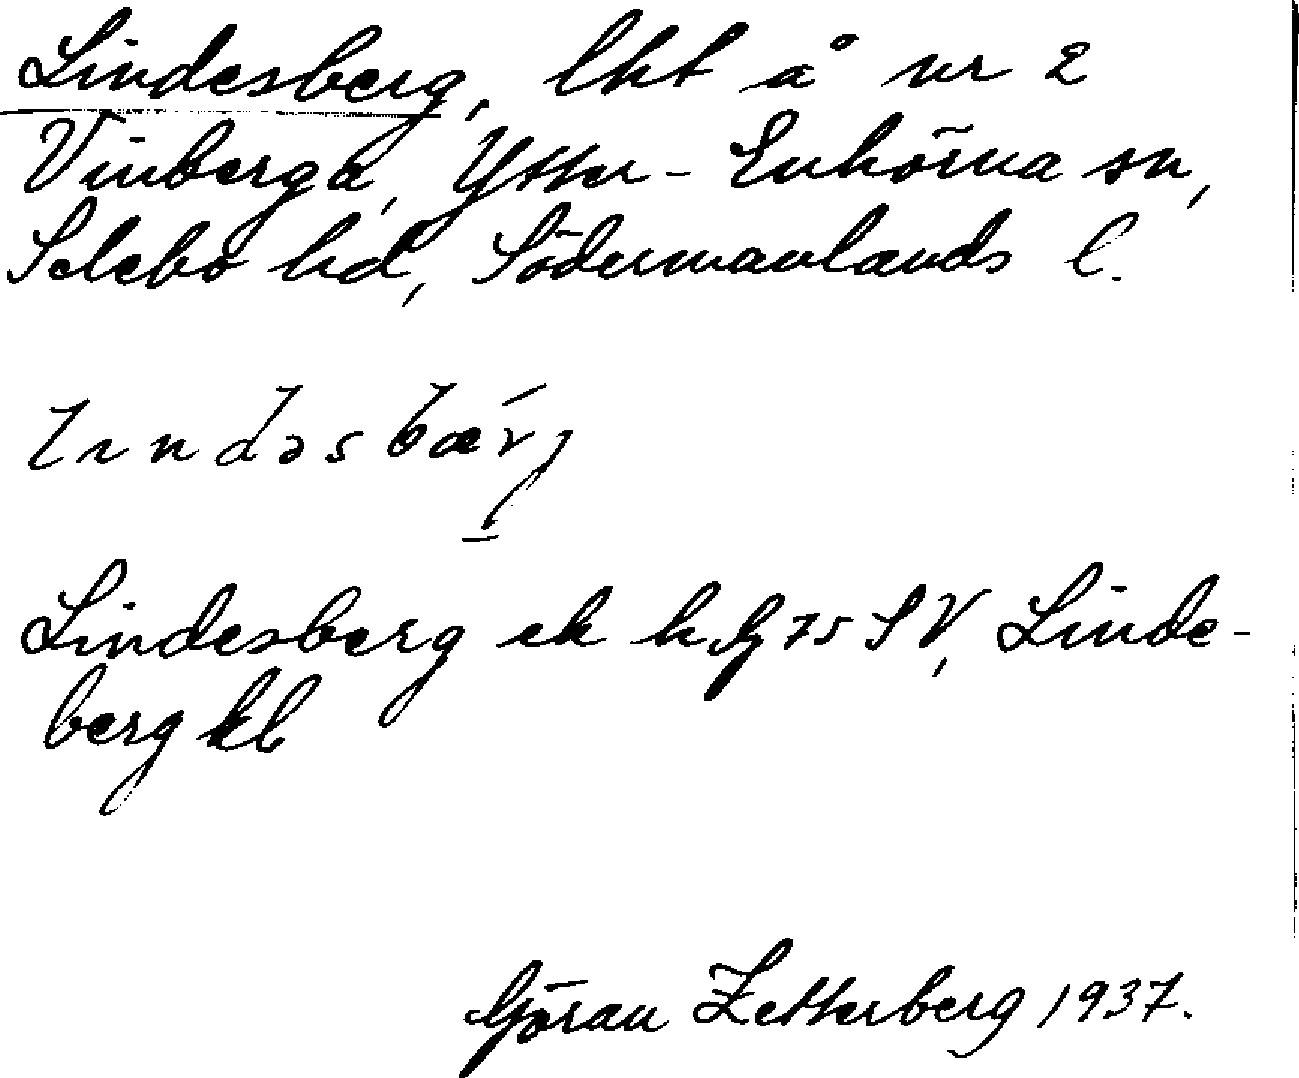 Lindesberg, lht å nr 2
Vinberga, Ytter-Enhörna sn,
Selebo hd, Södermanlands l.
lındəsbæ´rj
Lindesberg ek h. G 75 SV, Linde-
berg kb
Göran Zetterberg 1937.